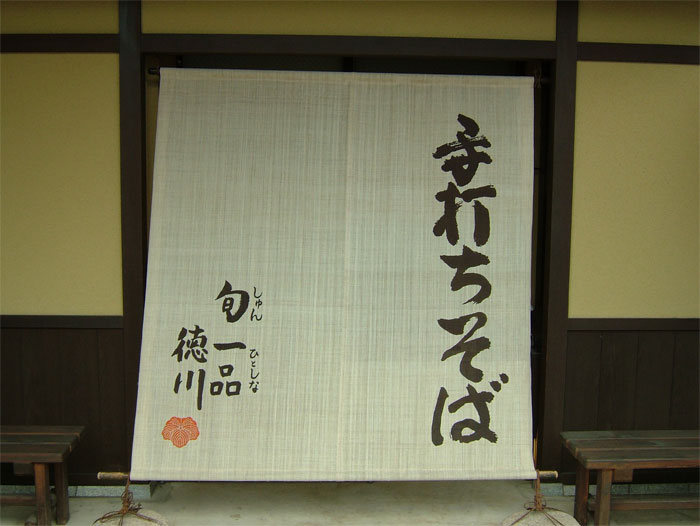 手打ちそば
旬一品
しゅん ひとしな
徳川